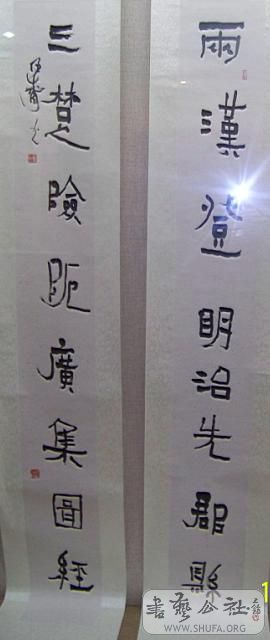 兩漢登明治先郡縣
三楚險阨廣集圖經
書藝公社
WWW.SHUFA.ORG
1